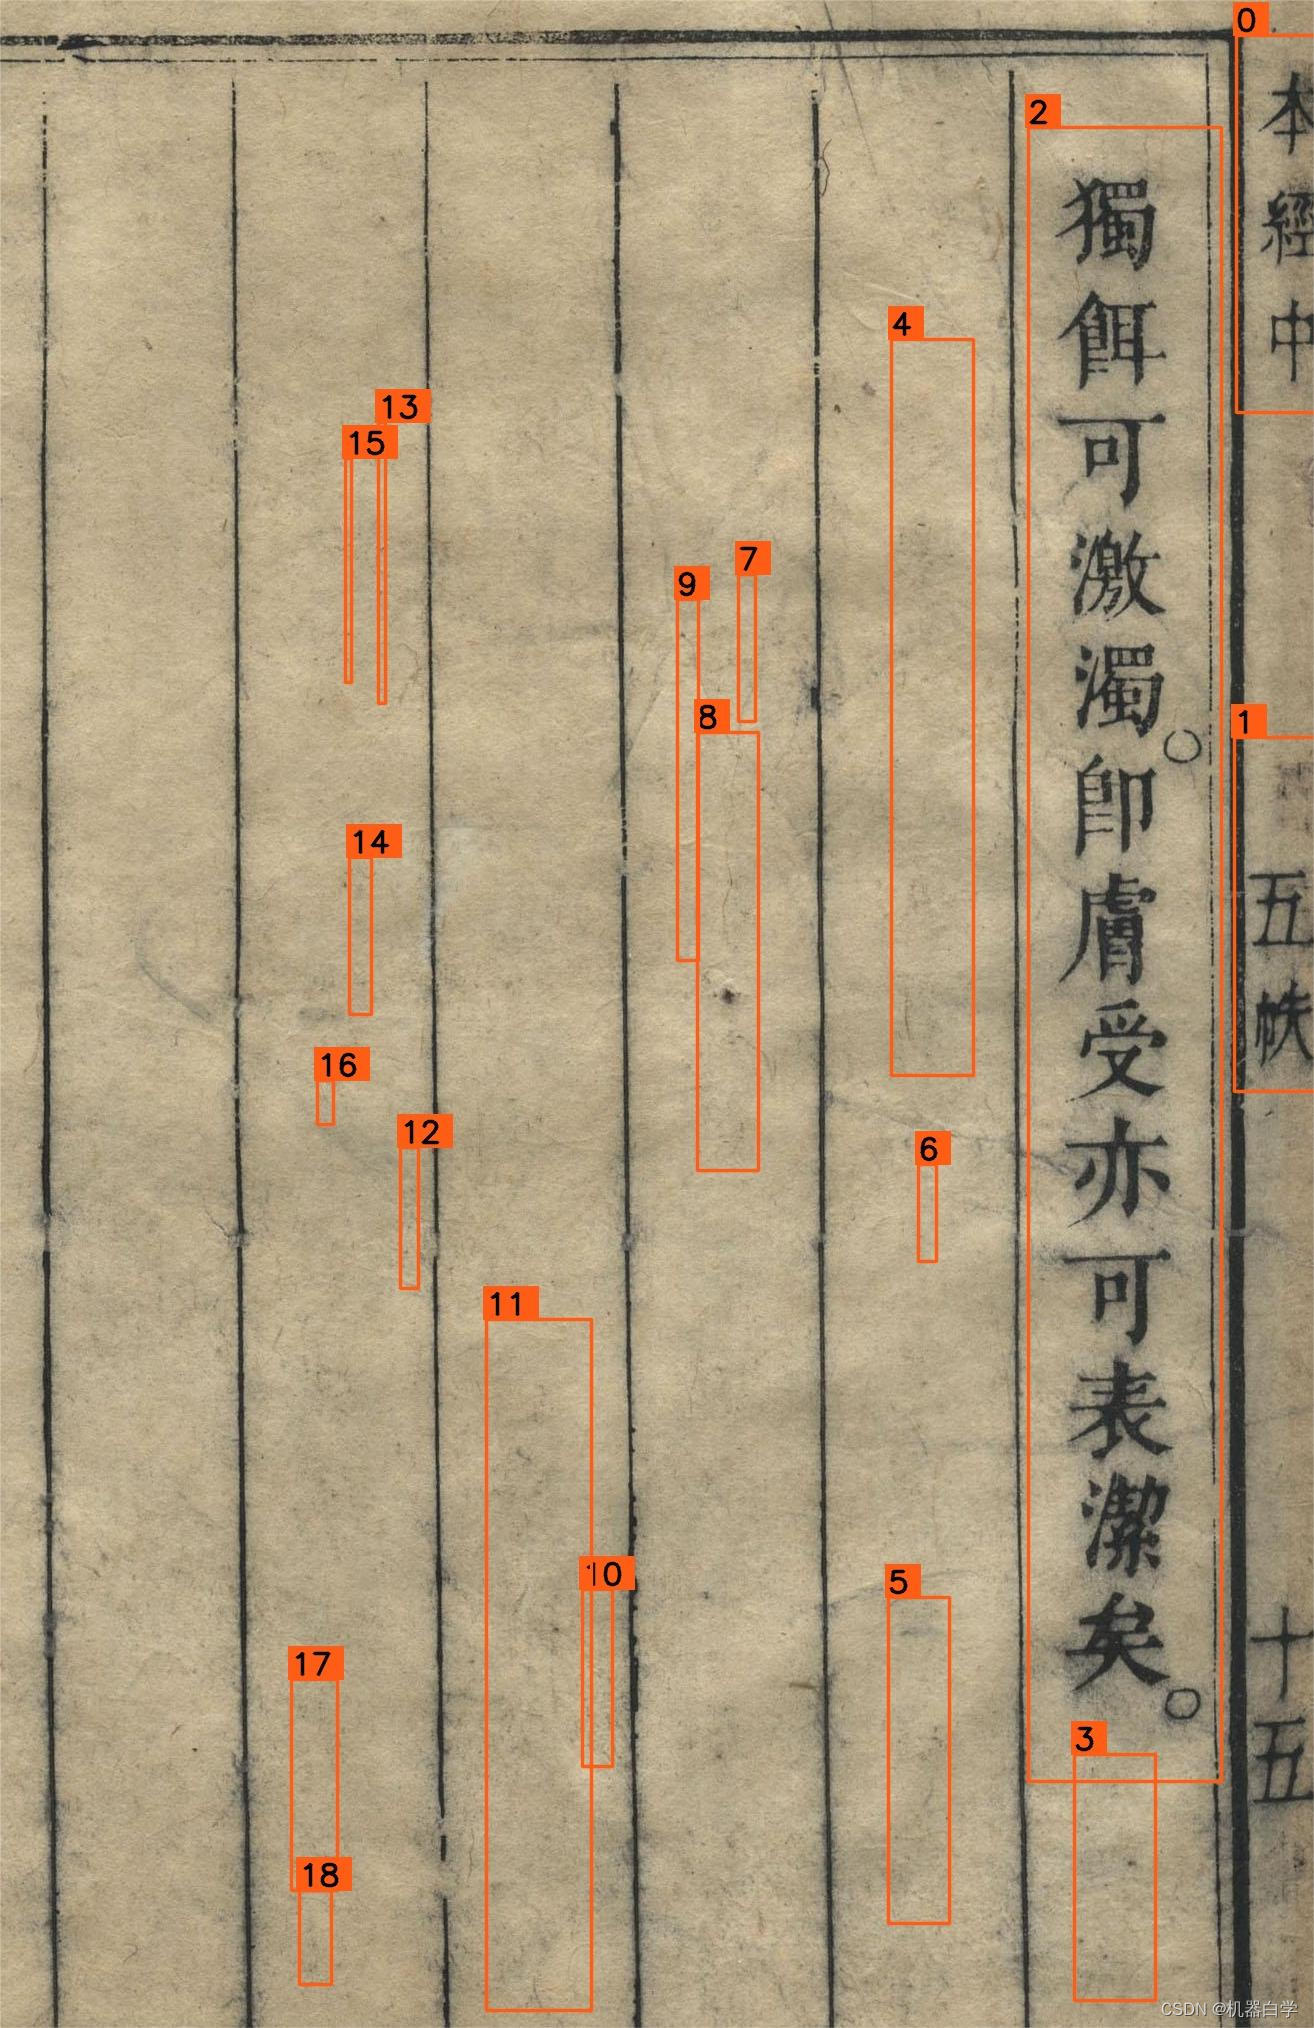 0
本經中
1
五帙
十五
2
獨餌可激濁。卽膚受亦可表潔矣。
3
4
6
5
7
9
8
10
11
13
15
14
16
12
17
18
CSDN @机器白学